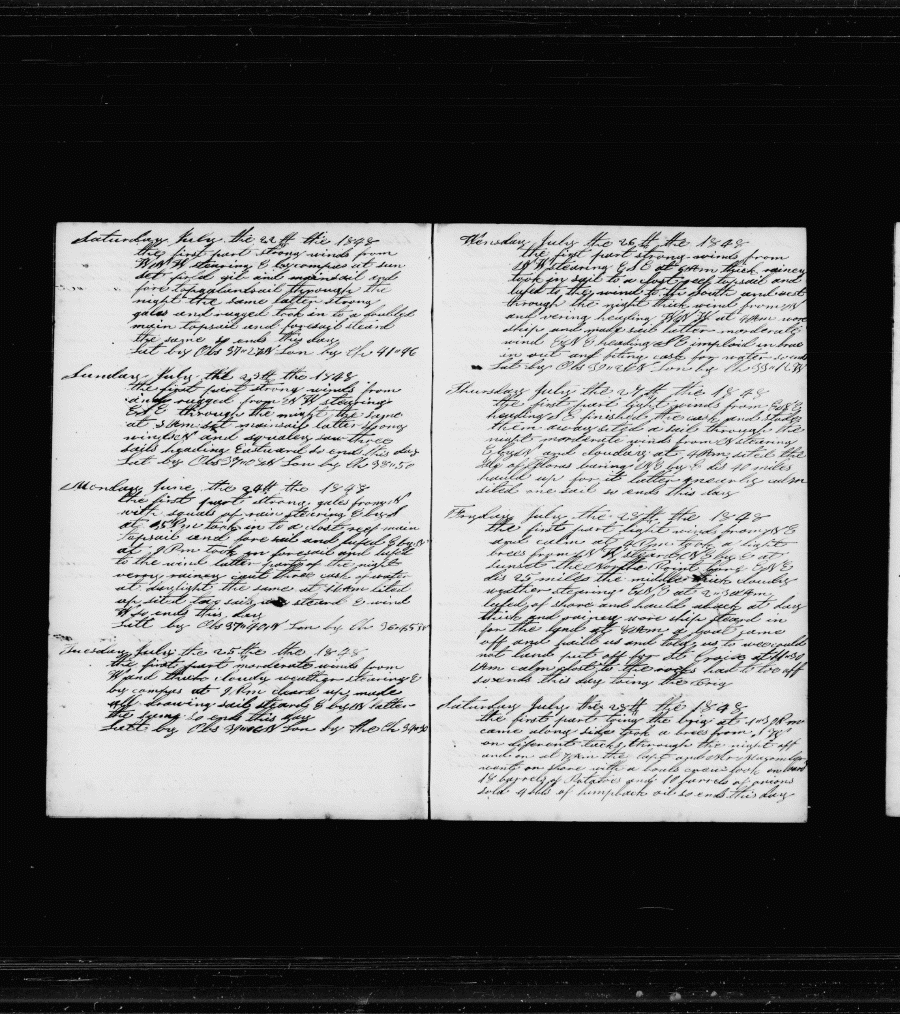 Saturday July the 22th the 1848
the first part strong winds from
W N W stearing E by compas at sun
set furld mainsail and
fore topgalantsail through the
night the same latter strong
gales and rugged took in to a doubled
main topsail and foresail steard
the same so ends this day
Lat by Obs 37=27N Lon by Ch 41=46
Sunday July the 23th the 1848
the first part strong winds from
and rugged from N W stearing
E S E through the night the same
at 5 Am set mainsail latter strong
winds N and squaley saw three
sails heading Eastward so ends this day
Lat by Obs 37= N Lon by Ch 38=50
Monday June the 24th the 1848
the first part strong gales from N
with squals of rain stearing E by S
at Pm took in to a close reef main
topsail and fore sail and lufed E by N
at 9 Pm took in foresail and lufed
to the wind latter part of the night
verry rainey caut three cask of water
at daylight the same at Am
up steard E wind
W so ends this day
Latt by Obs 37=40N Lon by Ch 36=45
Tuesday July the 25 the the 1848
the first part morderate winds from
W and cloudy weather stearing E
by compas at 9 Pm cleard up made
all drawing sail steard E by N latter
the same so ends this day
Latt by Obs N Lon by the Ch 34=30
Wensday July the 26th the 1848
the first part strong winds from
W stearing E S E at Am thick rainey
took in sail to a close reef topsail and
to the wind to the south and west
through the night thick wind from N
and vering heading W N W at 4 Am wore
ship and made sail latter morderate
wind heading S E imploid in brac
in out and fiting cask for water so ends
Lat by Obs N Lon by Ch 33=12W
Thursday July the 27th the 1848
the first part light winds from E N E
heading S E finished the cask and stode
them away sited a sail through the
night morderate winds from N stearing
E by N and cloudy at 4 Am sited the
Ile of Flores baring N E by E dis 40 miles
hauld up for it latter calm
sited one sail so ends this day
Fryday July the 28th the 1848
the first part light wind from N E
and calm at Pm took a light
brees from N W steard N E by E at
sunset the Northe Point baring E N E
dis 25 miles the middle thick cloudy
weather stearing E N E at 2=30 Am
lufed of shore and hauld aback at day
thick and rainey wore ship steard in
for the land at 8 Am a boat came
off and haild us and told us we could
not land put off for at 11=30
Am calm close to the rocks had to tow off
so ends this day toing the brig
Saturday July the 29th the 1848
the first part toing the brig at 1=30 Pm
came along side took a brees from N W
on diferents tacks through the night off
and on at 7 Am the Capt and
went on shore with a boats crew took on board
18 barrels of Potatoes and 10 barrels of onions
sold 4 bbls of humpback oil so ends this day